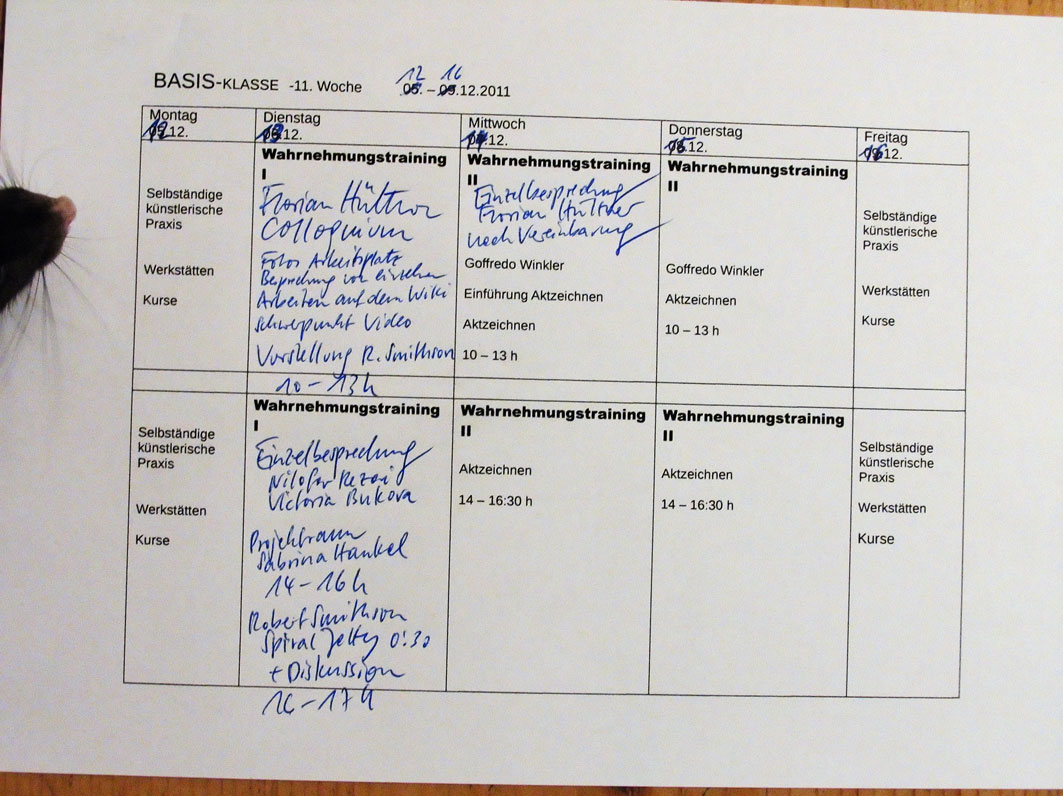 BASIS-KLASSE -11. Woche
12 16
05. – 09.12.2011
Montag
12.12.
Dienstag
13.12.
Mittwoch
14.12.
Donnerstag
15.12.
Freitag
16.12.
Selbständige
künstlerische
Praxis
Werkstätten
Kurse
Wahrnehmungstraining
I
Florian Hüttner
Colloquium
Fotos Arbeitsplatz
Besprechung von einzelnen
Arbeiten auf dem Wiki
Schwerpunkt Video
Vorstellung R. Smithson
10 – 13 h
Wahrnehmungstraining
II
Einzelbesprechung
Florian Hüttner
nach Vereinbarung
Goffredo Winkler
Einführung Aktzeichnen
Aktzeichnen
10 – 13 h
Wahrnehmungstraining
II
Goffredo Winkler
Aktzeichnen
10 – 13 h
Selbständige
künstlerische
Praxis
Werkstätten
Kurse
Selbständige
künstlerische
Praxis
Werkstätten
Kurse
Wahrnehmungstraining
I
Einzelbesprechung
Nilofar Rezai
Victoria Bukova
Projektraum
Sabrina Hankel
14 – 16 h
Robert Smithson
Spiral Jetty 0:30
+ Diskussion
16 – 17 h
Wahrnehmungstraining
II
Aktzeichnen
14 – 16:30 h
Wahrnehmungstraining
II
Aktzeichnen
14 – 16:30 h
Selbständige
künstlerische
Praxis
Werkstätten
Kurse